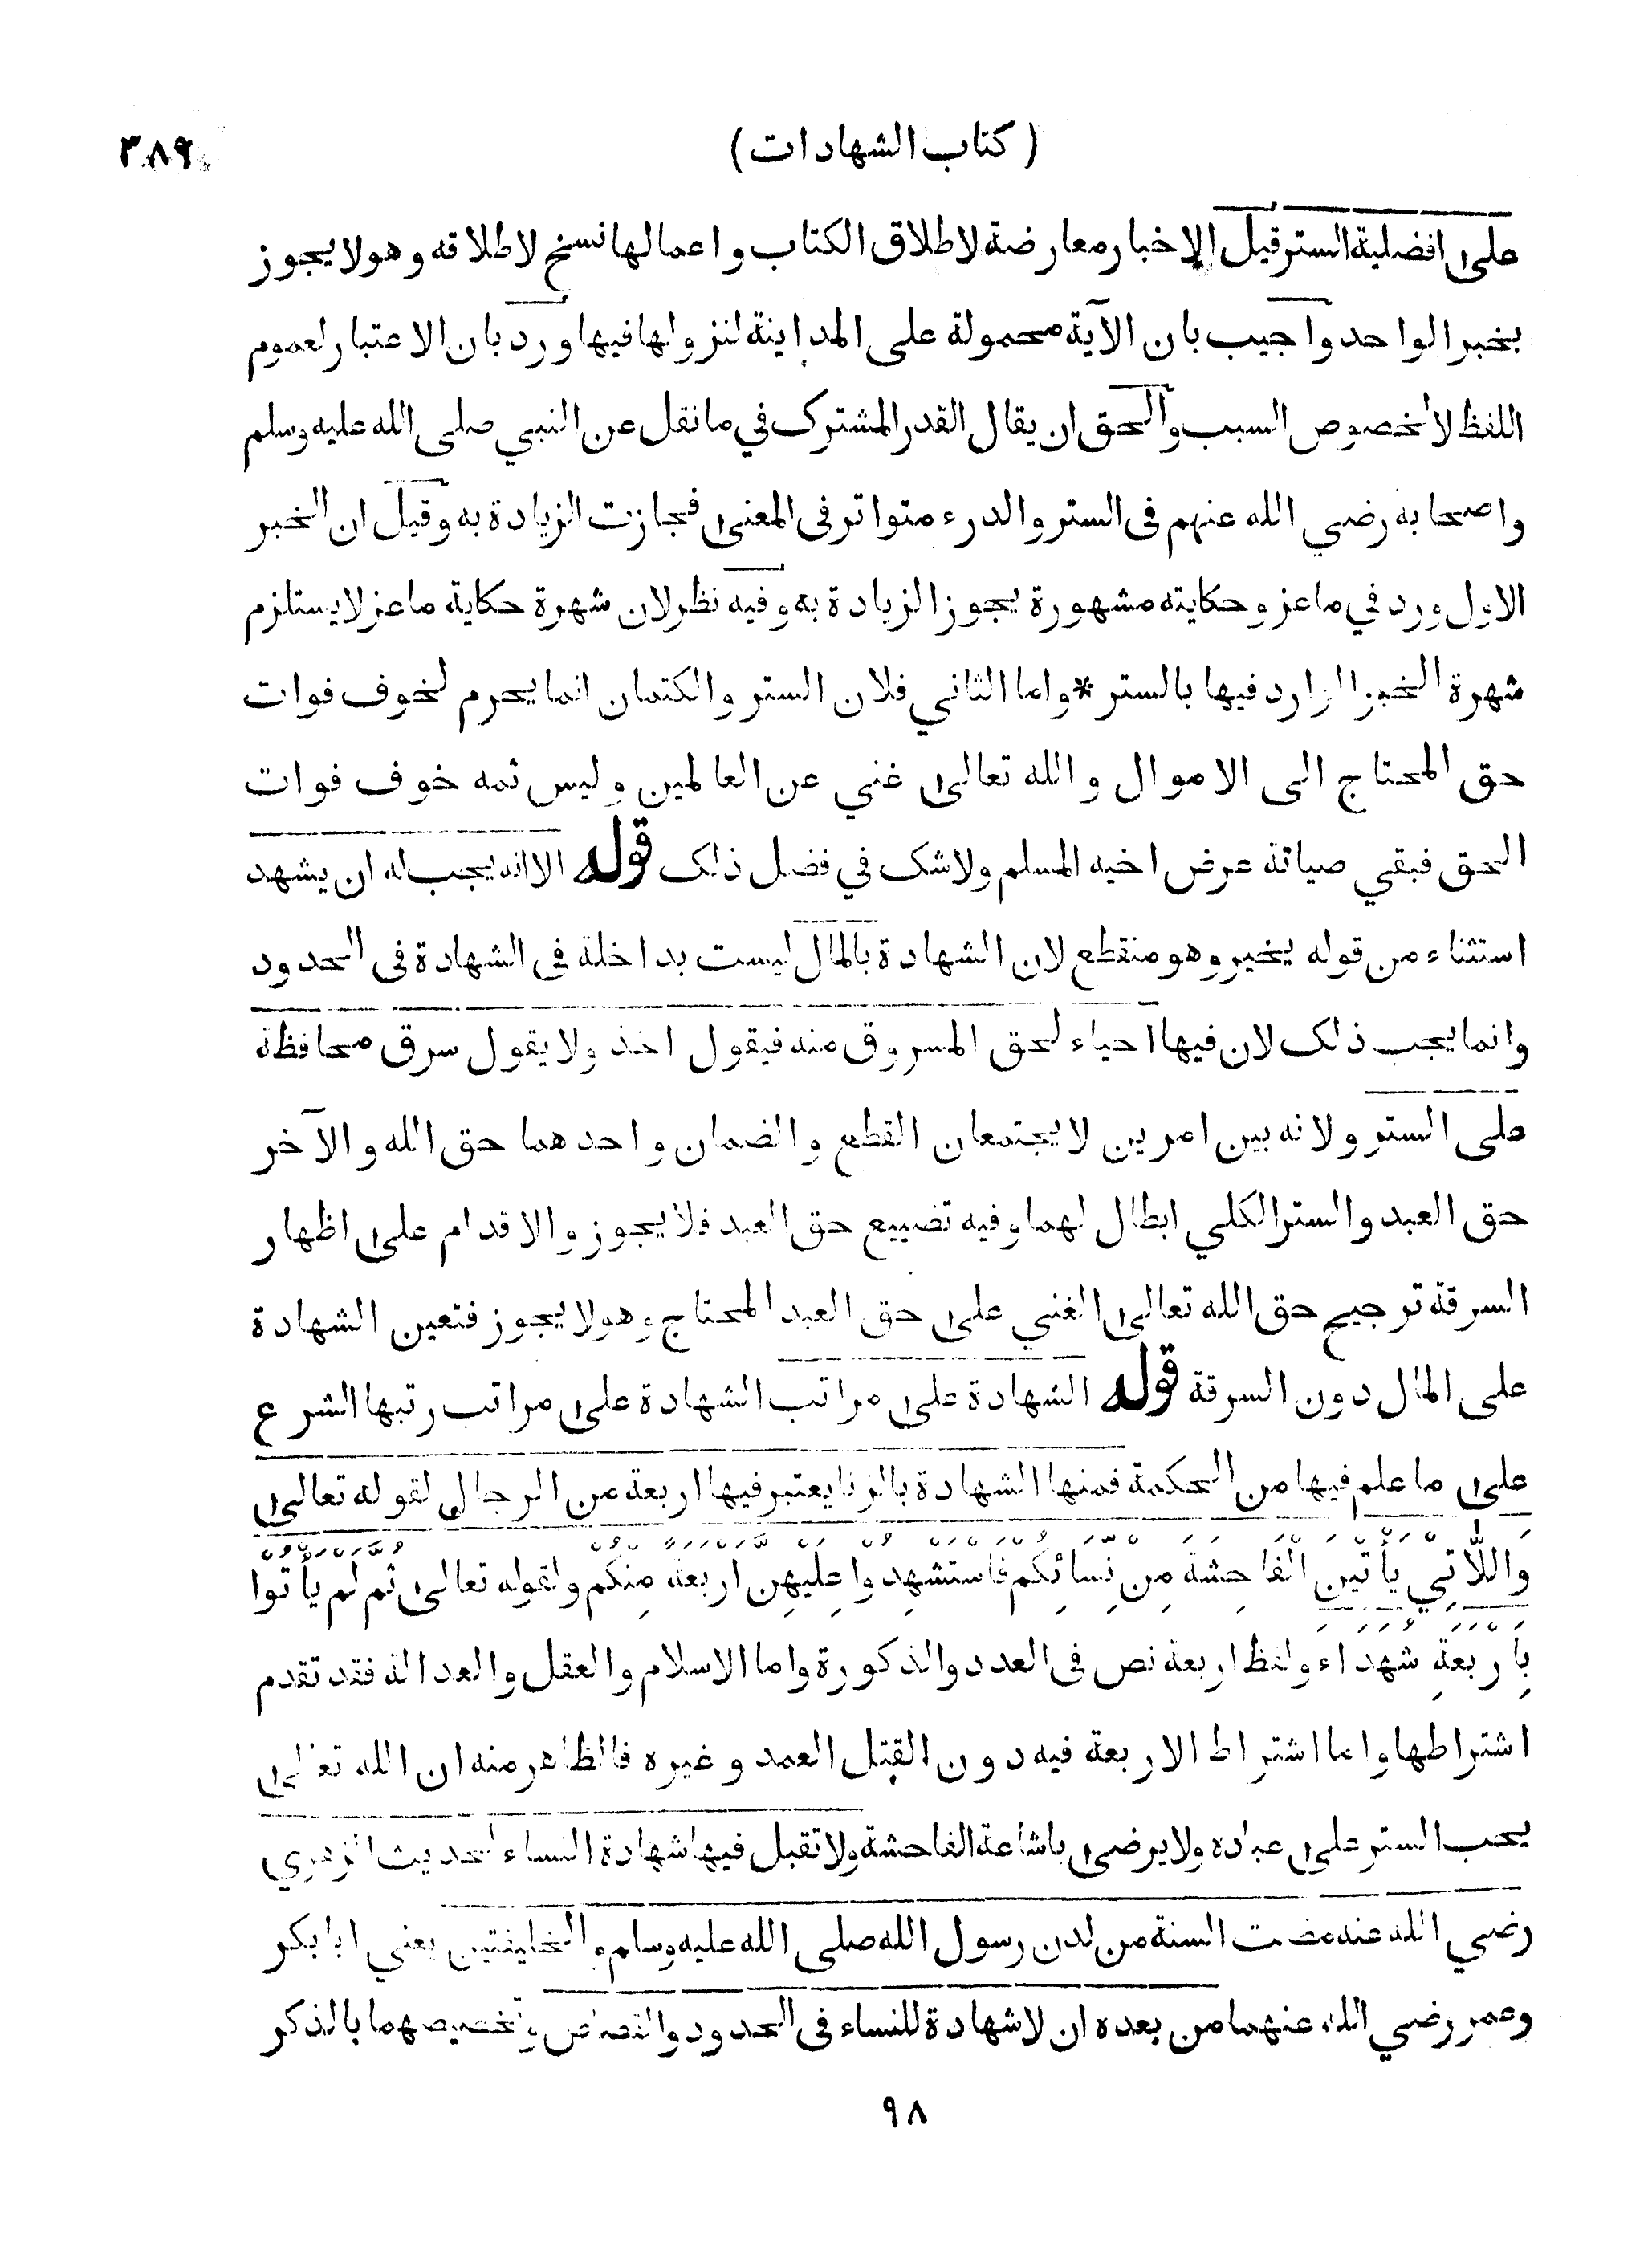 ( كتاب الشهادات )
٣٨٩
على افضلية الستر قيل الإخبار معارضة لاطلاق الكتاب واعمالها نسخ لاطلاقه وهو لا يجوز
بخبر الواحد واجيب بان الآية محمولة على المداينة لنزولها فيها ورد بان الاعتبار لعموم
اللفظ لا لخصوص السبب والحق ان يقال القدر المشترك في ما نقل عن النبي صلى الله عليه وسلم
واصحابه رضي الله عنهم فى الستر والدرء متواتر فى المعنى فجازت الزيادة به وقيل ان الخبر
الاول ورد في ماعز وحكايته مشهورة يجوز الزيادة به وفيه نظر لان شهرة حكاية ماعز لا يستلزم
شهرة الخبر الوارد فيها بالستر * واما الثاني فلان الستر والكتمان انما يحرم لخوف فوات
حق المحتاج الى الاموال والله تعالى غني عن العالمين وليس ثمه خوف فوات
الحق فبقي صيانة عرض اخيه المسلم ولا شك في فضل ذلك قوله الا انه يجب له ان يشهد
استثناء من قوله يخير وهو منقطع لان الشهادة بالمال ليست بداخلة فى الشهادة فى الحدود
وانما يجب ذلك لان فيها احياء لحق المسروق منه فيقول اخذ ولا يقول سرق محافظة
على الستر ولانه بين امرين لا يجتمعان القطع والضمان واحدهما حق الله والآخر
حق العبد والستر الكلي ابطال لهما وفيه تضييع حق العبد فلا يجوز والاقدام على اظهار
السرقة ترجيح حق الله تعالى الغني على حق العبد المحتاج وهو لا يجوز فتعين الشهادة
على المال دون السرقة قوله الشهادة على مراتب الشهادة على مراتب رتبها الشرع
على ما علم فيها من الحكمة فمنها الشهادة بالزنا يعتبر فيها اربعة من الرجال لقوله تعالى
وَاللَّاتِيْ يَأْتِيْنَ الْفَاحِشَةَ مِنْ نِّسَائِكُمْ فَاسْتَشْهِدُوْا عَلَيْهِنَّ اَرْبَعَةً مِنْكُمْ ولقوله تعالى ثُمَّ لَمْ يَأْتُوْا
بِاَرْبَعَةِ شُهَدَاءَ ولفظ اربعة نص فى العدد والذكورة واما الاسلام والعقل والعدالة فقد تقدم
اشتراطها واما اشتراط الاربعة فيه دون القتل العمد وغيره فالظاهر منه ان الله تعالى
يحب الستر على عباده ولا يرضى باشاعة الفاحشة ولا تقبل فيها شهادة النساء لحديث الزهري
رضي الله عنه مضت السنة من لدن رسول الله صلى الله عليه وسلم والخليفتين يعني ابا بكر
وعمر رضي الله عنهما من بعده ان لا شهادة للنساء فى الحدود والقصاص وتخصيصهما بالذكر
٩٨